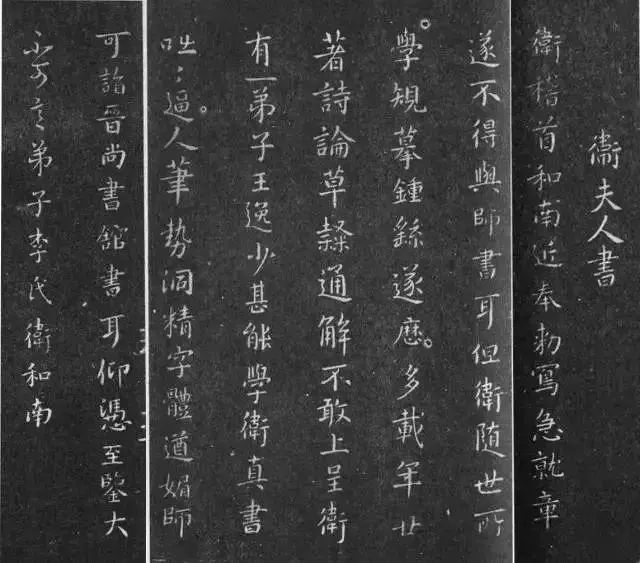 衛夫人書
衛稽首和南近奉勑寫急就章
遂不得與師書耳但衛隨世所
學規摹鍾繇遂歷多載年廿
著詩論草隸通解不敢上呈衛
有一弟子王逸少甚能學衛真書
咄々逼人筆勢洞精字體遒媚師
可詣晉尚書舘書耳仰憑至鑒大
不可言弟子李氏衛和南